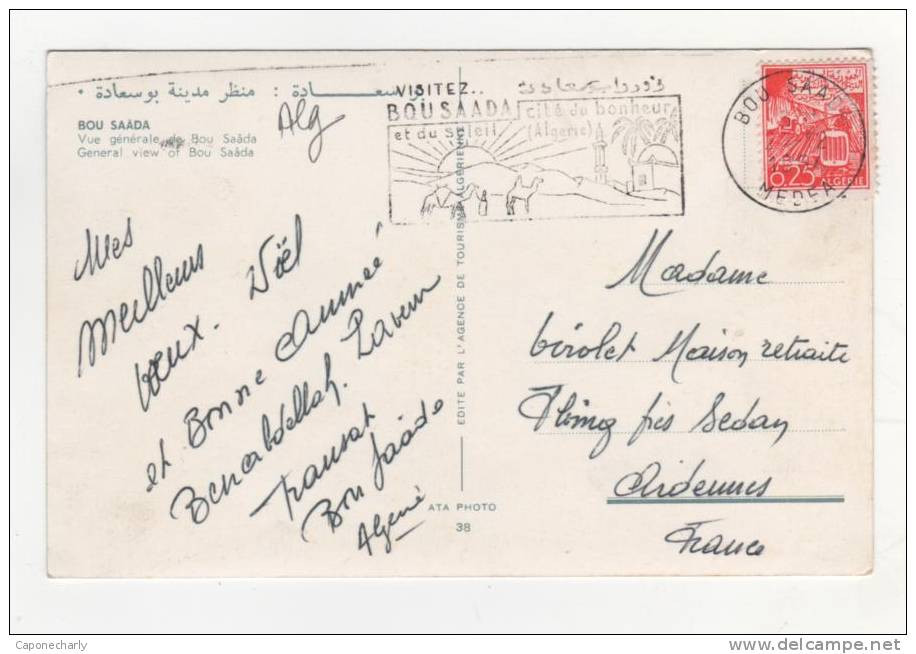 بوسعــــــادة : منظر مدينة بوسعادة •
BOU SAÂDA
Vue générale de Bou Saâda
General view of Bou Saâda
Alg
Mes
Meilleurs
Vœux. Noël
et Bonne Année
Benabdellah.
Transat
Bou Saâda
Algerie
EDITE PAR L'AGENCE DE TOURISME ALGERIENNE
ATA PHOTO
38
VISITEZ..
BOUSAADA cité du bonheur
et du soleil (Algerie)
BOU SAADA
MEDEA
0,25 ALGERIE
Madame
Maison retraite
près Sedan
Ardennes
France
Caponecharly
delcampe.net